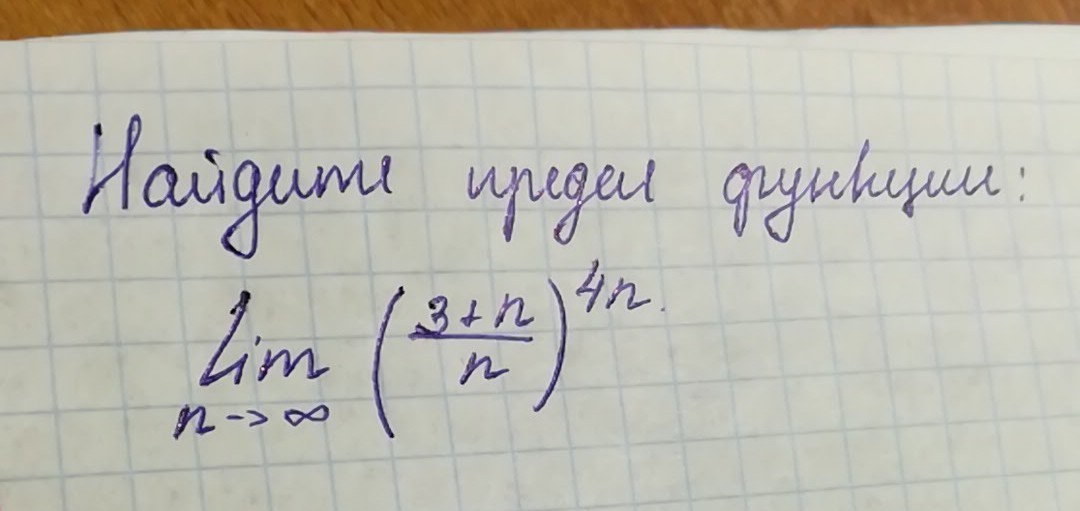 Найдите предел функции:
lim n→∞ ((3+n)/n)^4n.